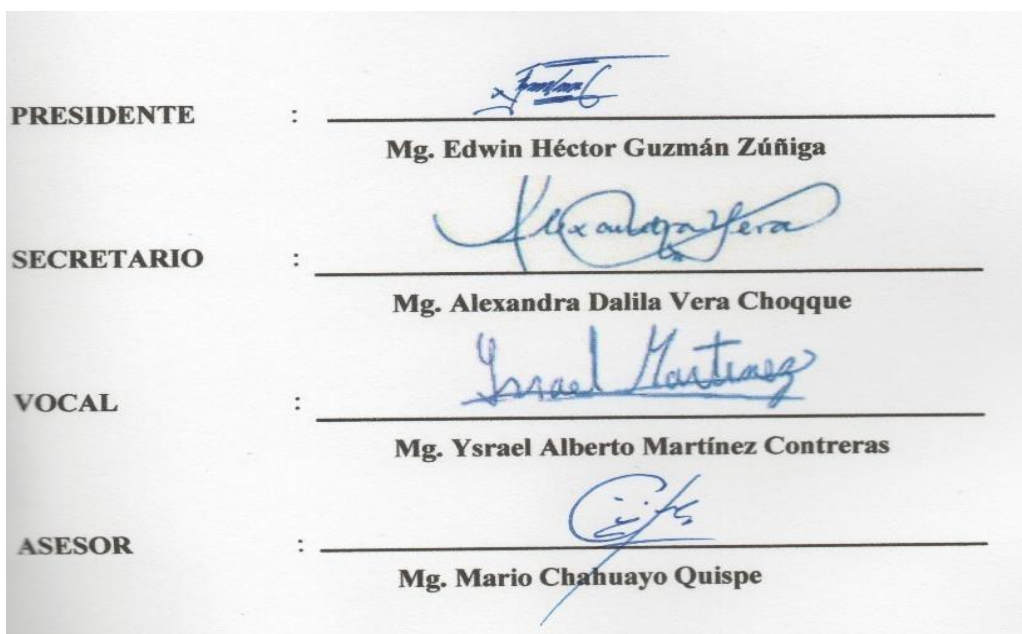 PRESIDENTE :
Mg. Edwin Héctor Guzmán Zúñiga
Alexandra Vera
SECRETARIO :
Mg. Alexandra Dalila Vera Choqque
Ysrael Martinez
VOCAL :
Mg. Ysrael Alberto Martínez Contreras
ASESOR :
Mg. Mario Chahuayo Quispe